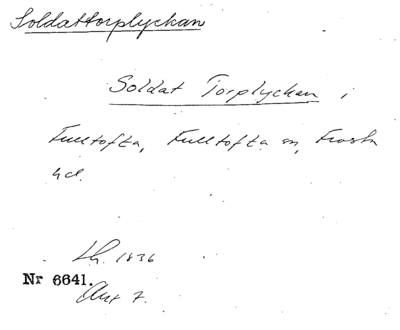 Soldattorplyckan
Soldat Torplyckan i
Fulltofta, Fulltofta sn, Frosta
hd.
Lh. 1836
Nr 6641.
Akt 7.